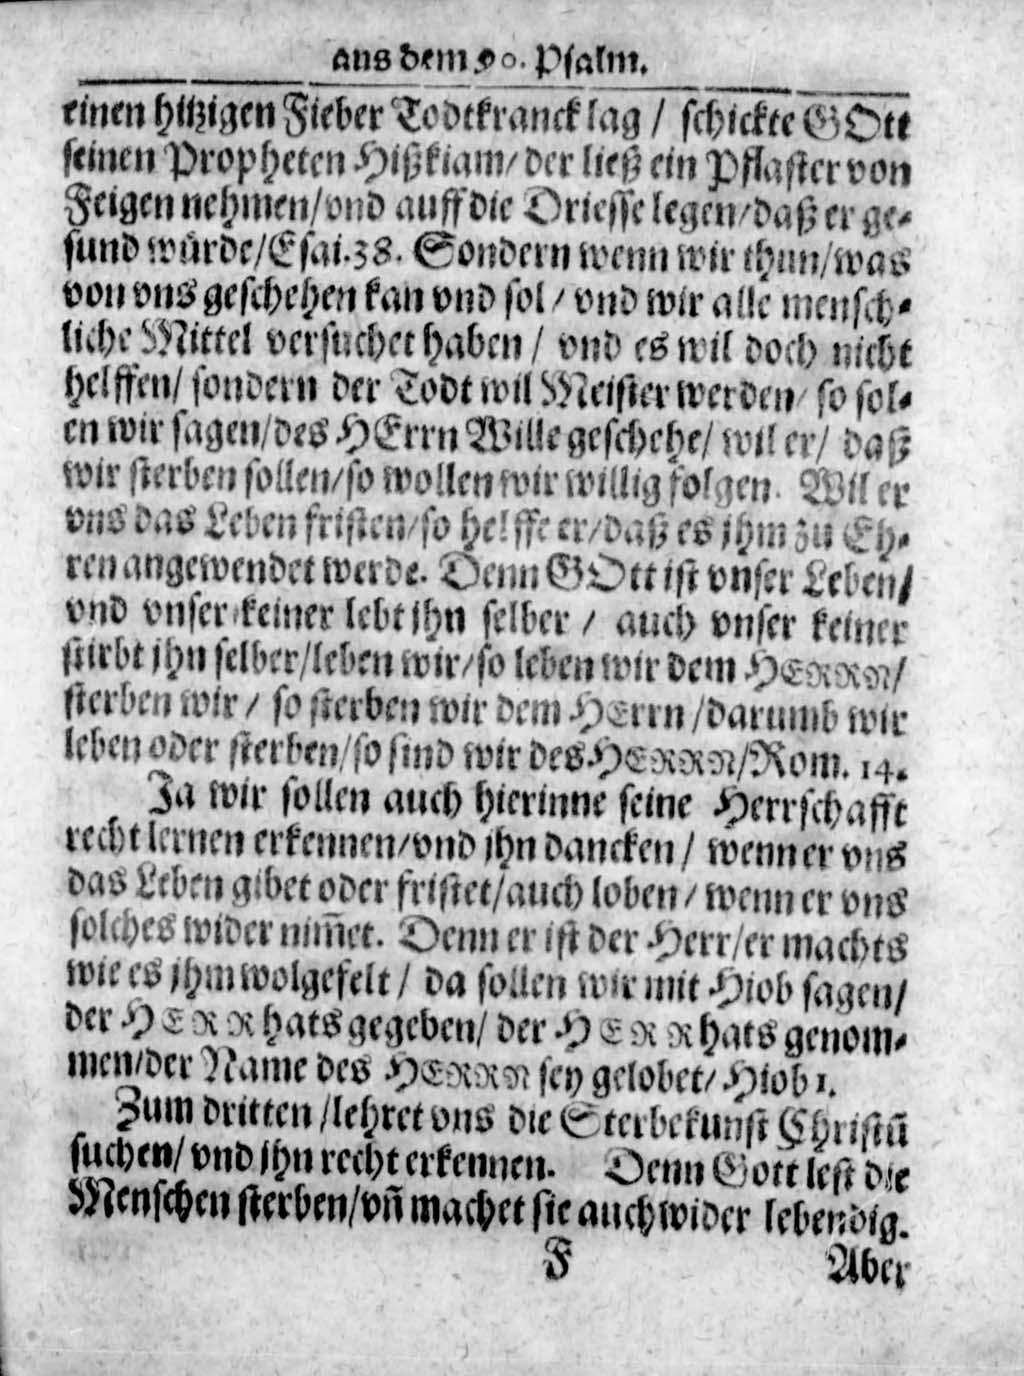 aus dem 90. Psalm.
einen hitzigen Fieber Todtkranck lag / schickte GOtt
seinen Propheten Hißkiam/ der ließ ein Pflaster von
Feigen nehmen/vnd auff die Driesse legen/daß er ge-
sund würde/Esai.38. Sondern wenn wir thun/was
von vns geschehen kan vnd sol / vnd wir alle mensch-
liche Mittel versuchet haben / vnd es wil doch nicht
helffen/ sondern der Todt wil Meister werden/ so sol-
en wir sagen/des HErrn Wille geschehe/ wil er/ daß
wir sterben sollen/so wollen wir willig folgen. Wil er
vns das Leben fristen/so helffe er/daß es jhm zu Eh-
ren angewendet werde. Denn GOtt ist vnser Leben/
vnd vnser keiner lebt jhn selber / auch vnser keiner
stirbt jhn selber/leben wir/so leben wir dem HERRN/
sterben wir / so sterben wir dem HErrn /darumb wir
leben oder sterben/so sind wir des HERRN/Rom. 14.
Ja wir sollen auch hierinne seine Herrschafft
recht lernen erkennen/vnd jhn dancken / wenn er vns
das Leben gibet oder fristet/auch loben / wenn er vns
solches wider nim̃et. Denn er ist der Herr/er machts
wie es jhm wolgefelt / da sollen wir mit Hiob sagen/
der HERR hats gegeben/ der HERR hats genom-
men/der Name des HERRN sey gelobet/ Hiob 1.
Zum dritten /lehret vns die Sterbekunst Christũ
suchen/ vnd jhn recht erkennen. Denn Gott lest die
Menschen sterben/vñ machet sie auch wider lebendig.
F Aber